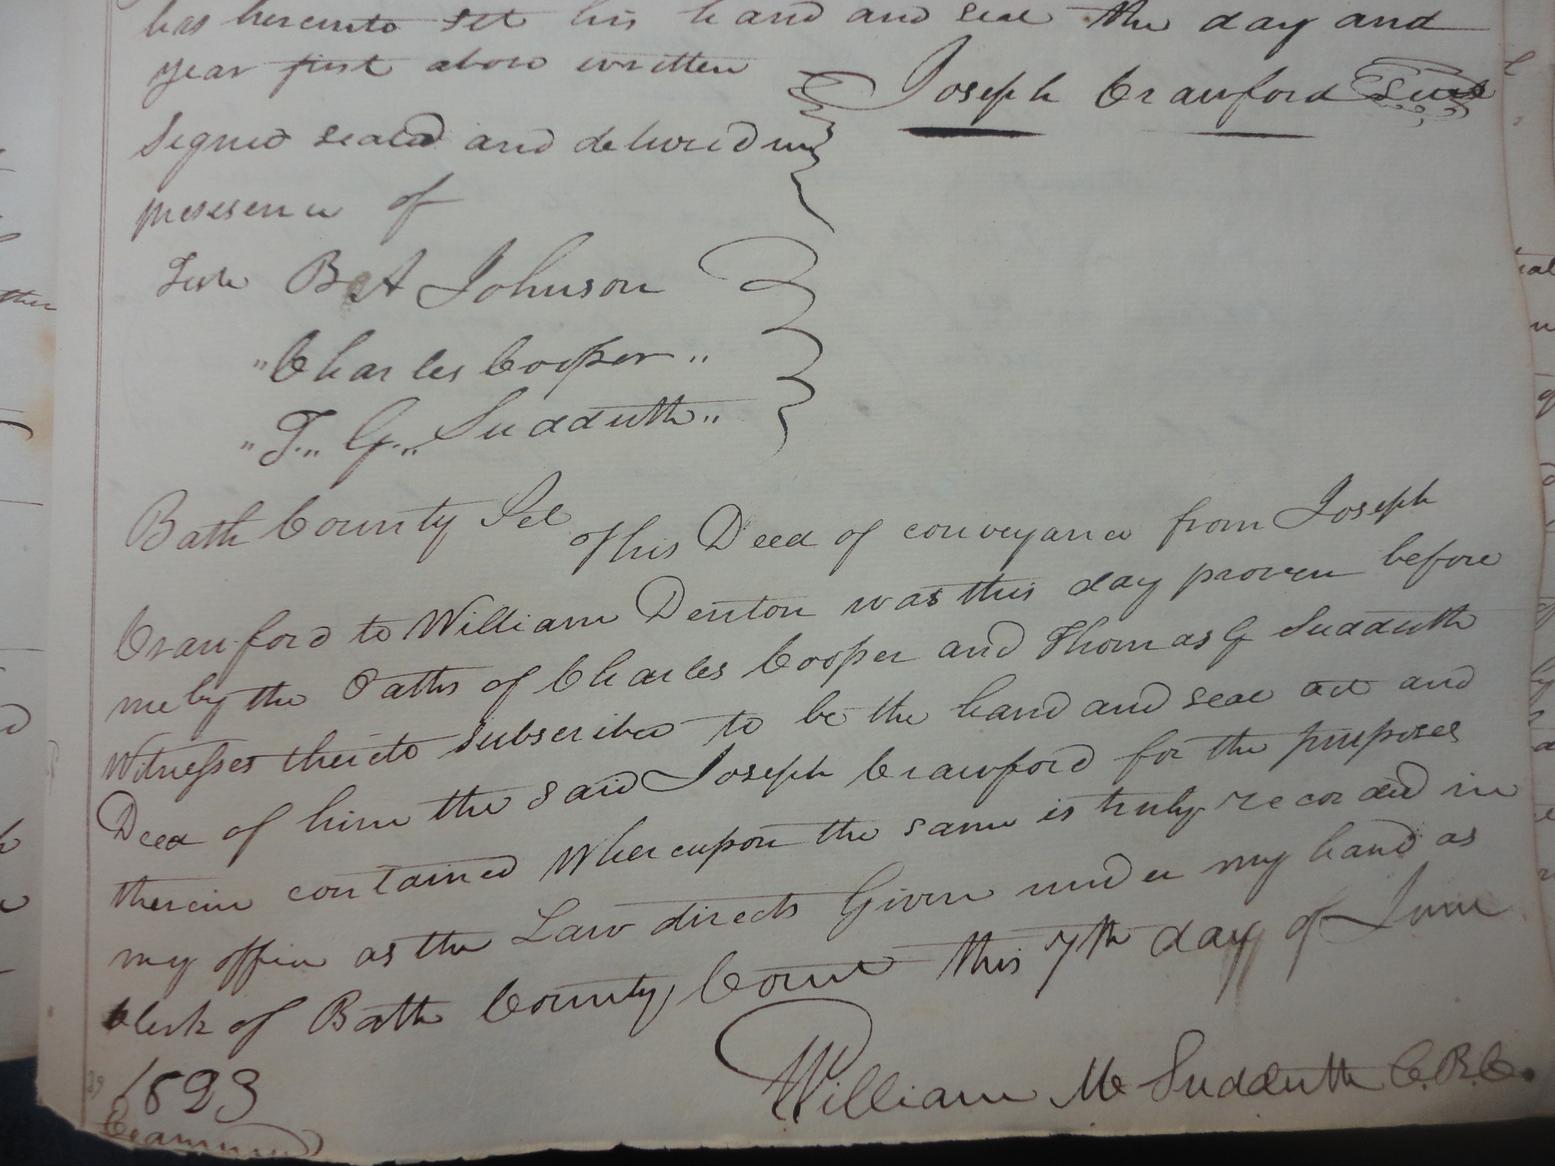 has hereunto set his hand and seal the day and
year first above written
Joseph Crawford Seal
Signed sealed and delivered in
presesence of
Teste B A Johnson
" Charles Cooper "
" T.. G.. Sudduth "
Bath County Sct
This Deed of conveyance from Joseph
Crawford to William Denton was this day proven before
me by the Oaths of Charles Cooper and Thomas G Sudduth
Witnesses thereto subscribed to be the hand and seal act and
Deed of him the said Joseph Crawford for the purposes
therein contained Whereupon the same is truly recorded in
my office as the Law directs Given under my hand as
Clerk of Bath County Court this 7th day of June
1823
William M Sudduth C.B.C.
Examined